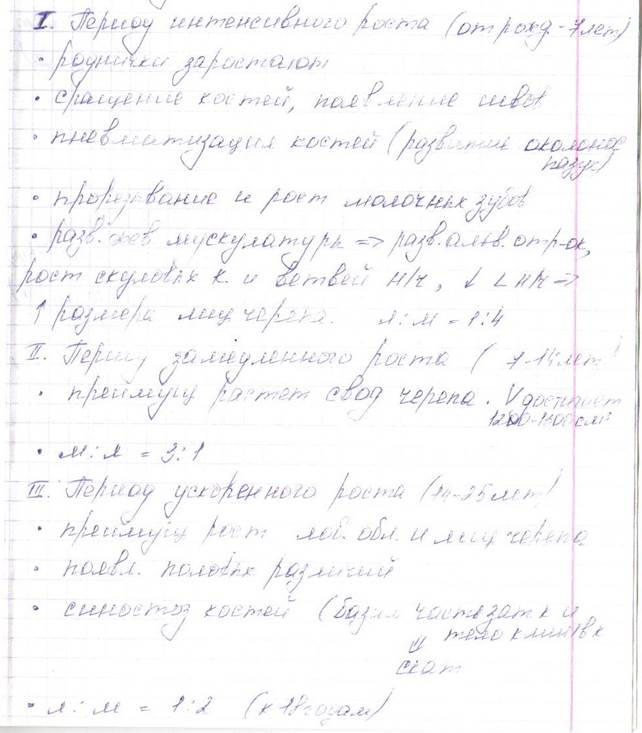 I. Период интенсивного роста (от рожд-7лет)
• роднички заростают
• сращение костей, появление швов
• пневматизация костей (развитие околонос
пазух)
• прорезывание и рост молочных зубов
• разв. жев мускулатуры => разв. альв. отр-ов,
рост скуловых к. и ветвей н/ч, ↓ ∠ н/ч =>
↑ размера лиц черепа. л:м = 1:4
II. Период замедленного роста ( 7-14лет)
• преимущ растет свод черепа. V достигает
1200-1300см³
• м:л = 3:1
III. Период ускоренного роста (14-25лет)
• преимущ рост лоб. обл. и лиц черепа
• появл. половых различий
• синостоз костей (базил часть зат к и
тело клинов к
⇓
скат
• л:м = 1:2 (к 18 годам)